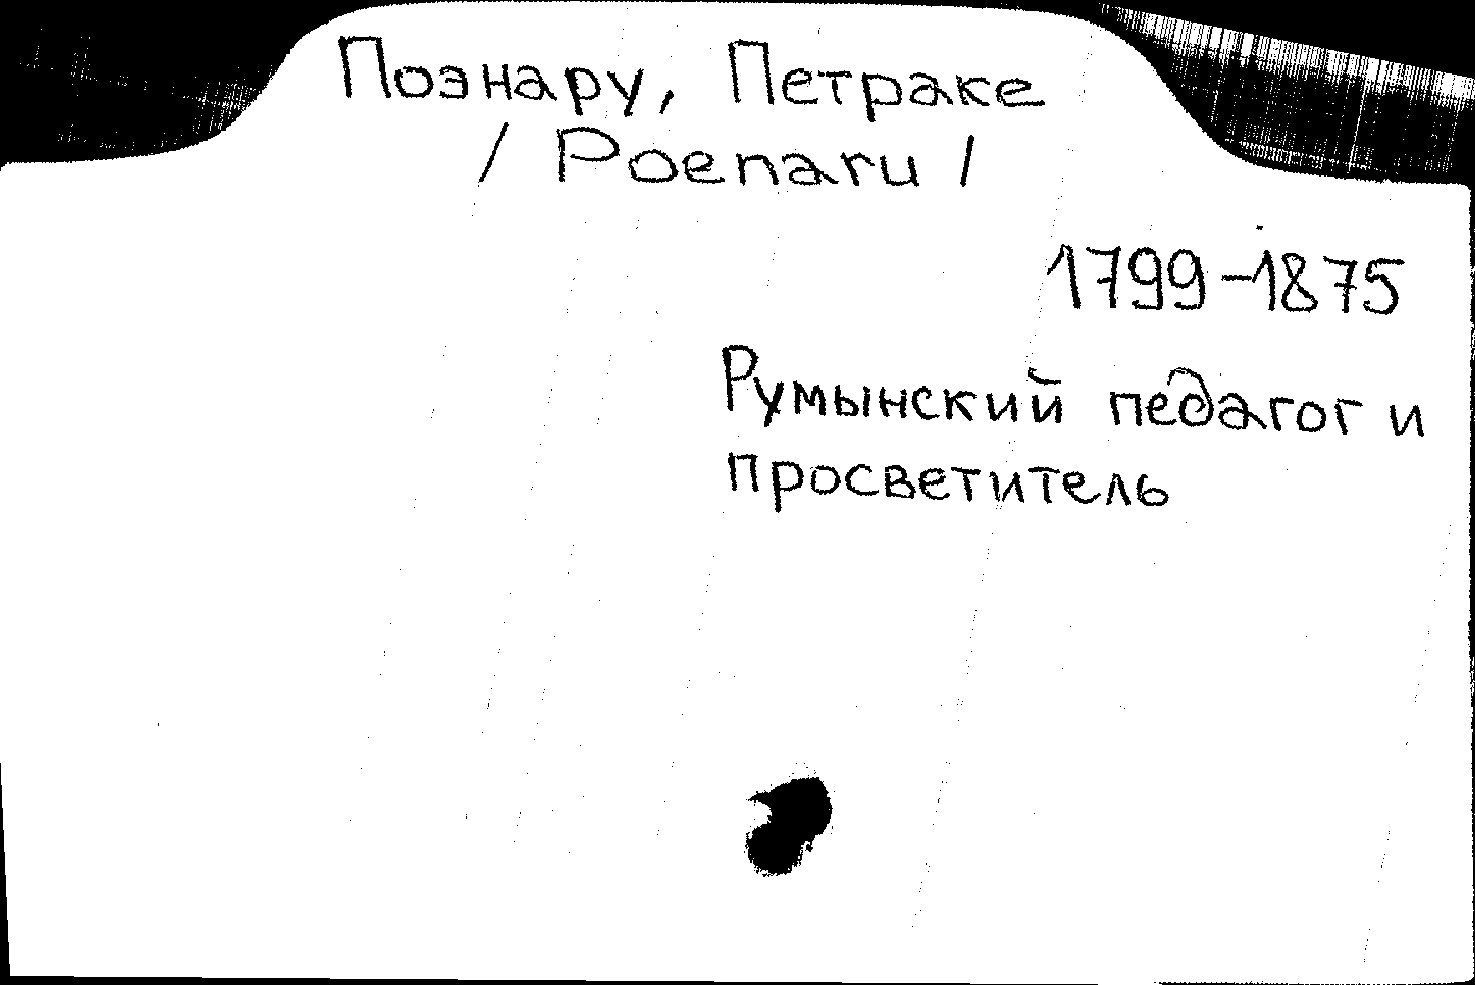 Поэнару, Петраке
/ Poenaru /
1799-1875
Румынский педагог и
просветитель